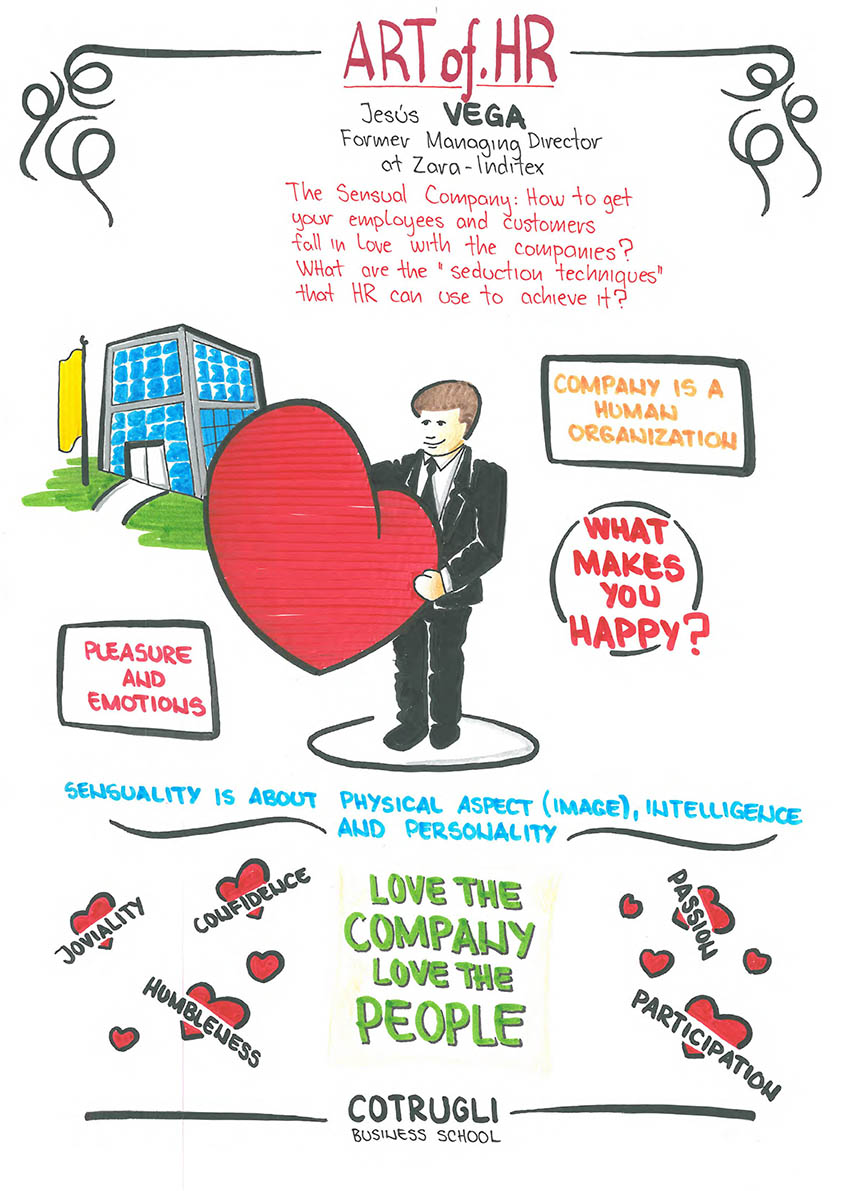 ART of. HR
Jesús VEGA
Former Managing Director
at Zara-Inditex
The Sensual Company: How to get
your employees and customers
fall in love with the companies?
What are the "seduction techniques"
that HR can use to achieve it?
COMPANY IS A
HUMAN
ORGANIZATION
WHAT
MAKES
YOU
HAPPY?
PLEASURE
AND
EMOTIONS
SENSUALITY IS ABOUT PHYSICAL ASPECT (IMAGE), INTELLIGENCE
AND PERSONALITY
JOVIALITY
CONFIDENCE
HUMBLENESS
LOVE THE
COMPANY
LOVE THE
PEOPLE
PASSION
PARTICIPATION
COTRUGLI
BUSINESS SCHOOL